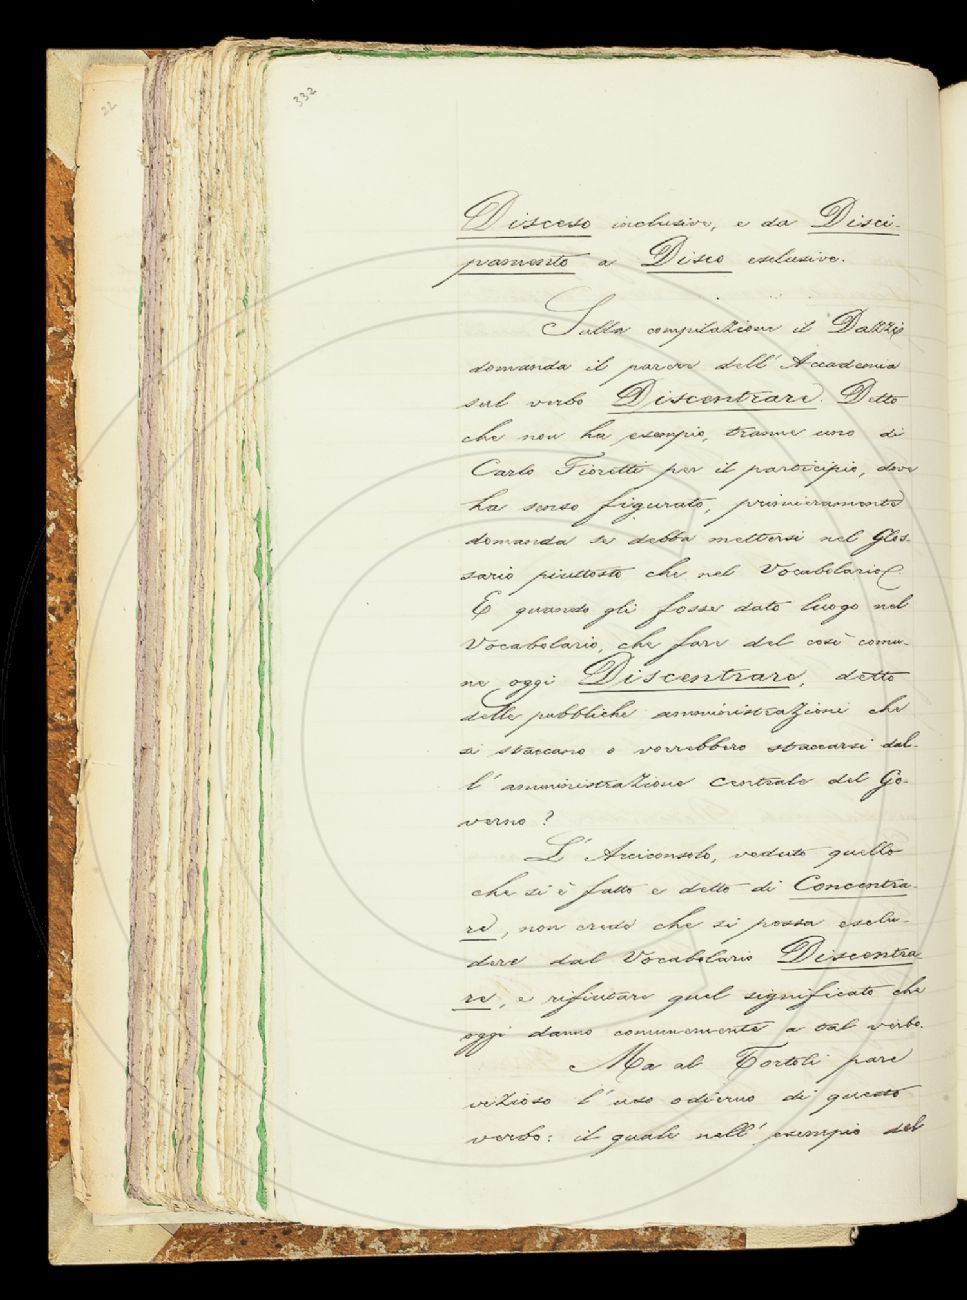 22
332
Disceso inclusive, e da Disci-
pamento a Disco esclusive.
Sulla compilazione il Dazzi
domanda il parere dell'Accademia
sul verbo Discentrare. Detto
che non ha esempio, tranne uno di
Carlo Fioretti per il participio, dove
ha senso figurato, primieramente
domanda se debba mettersi nel Glos-
sario piuttosto che nel Vocabolario.
E quando gli fosse dato luogo nel
Vocabolario, che fare del così comu-
ne oggi Discentrare, detto
delle pubbliche amministrazioni che
si staccano o vorrebbero staccarsi dal-
l'amministrazione centrale del Go-
verno?
L'Arciconsolo, veduto quello
che si è fatto e detto di Concentra-
re, non crede che si possa esclu-
dere dal Vocabolario Discentra-
re, e rifiutare quel significato che
oggi danno comunemente a tal verbo.
Ma al Tortoli pare
vizioso l'uso odierno di questo
verbo: il quale nell'esempio del